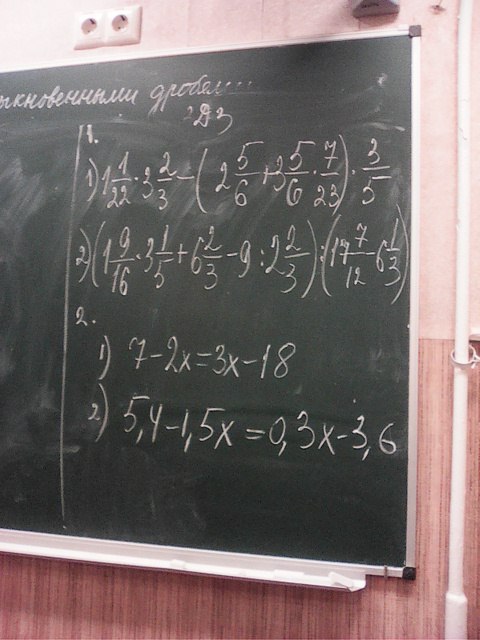 ыкновенными дробями
ДЗ
1.
1) 1 1/22 · 3 2/3 - (2 5/6 + 3 5/6 · 7/23) · 3/5
2) (1 9/16 · 3 1/5 + 6 2/3 - 9 : 2 2/3) : (17 7/12 - 6 1/3)
2.
1) 7 - 2x = 3x - 18
2) 5,4 - 1,5x = 0,3x - 3,6